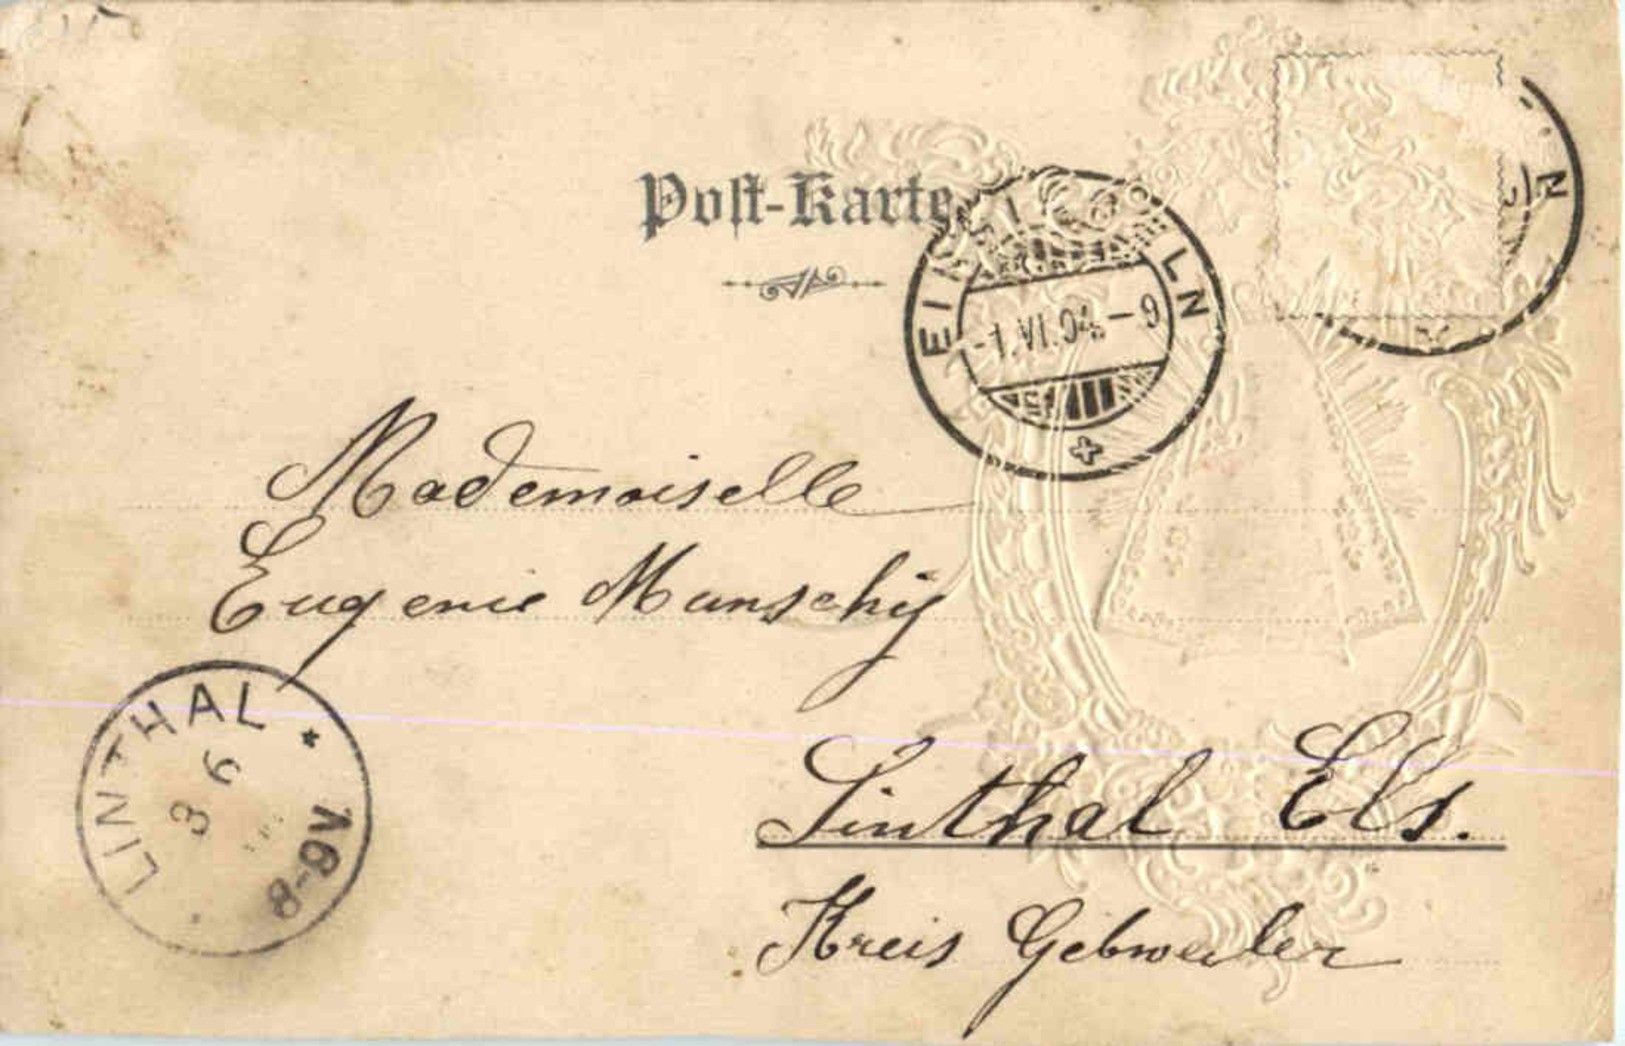 Post-Karte
EIN LN
-1.VI.04.-9
N
Mademoiselle
Eugenie Munschy
Linthal Els.
Kreis Gebweiler
LINTHAL *
3 6
8-9V